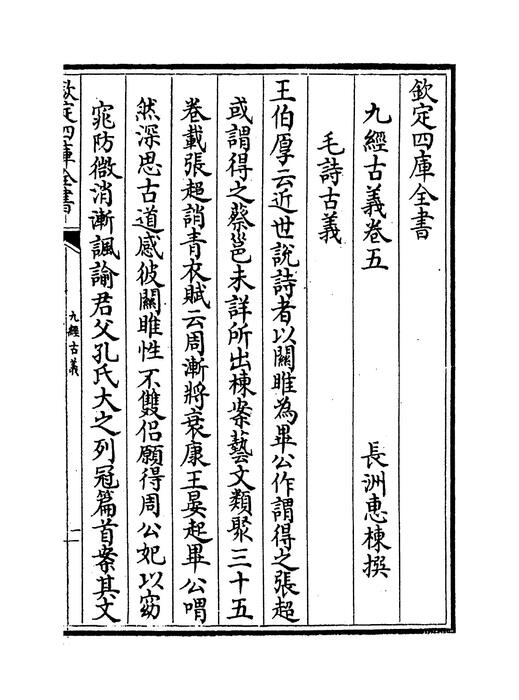 欽定四庫全書
九經古義卷五
長洲惠棟撰
毛詩古義
王伯厚云近世說詩者以關雎為畢公作謂得之張超
或謂得之蔡邕未詳所出棟案藝文類聚三十五
卷載張超誚青衣賦云周漸將衰康王晏起畢公喟
然深思古道感彼關雎性不雙侶願得周公妃以窈
窕防微消漸諷諭君父孔氏大之列冠篇首案其文
欽定四庫全書
九經古義
一